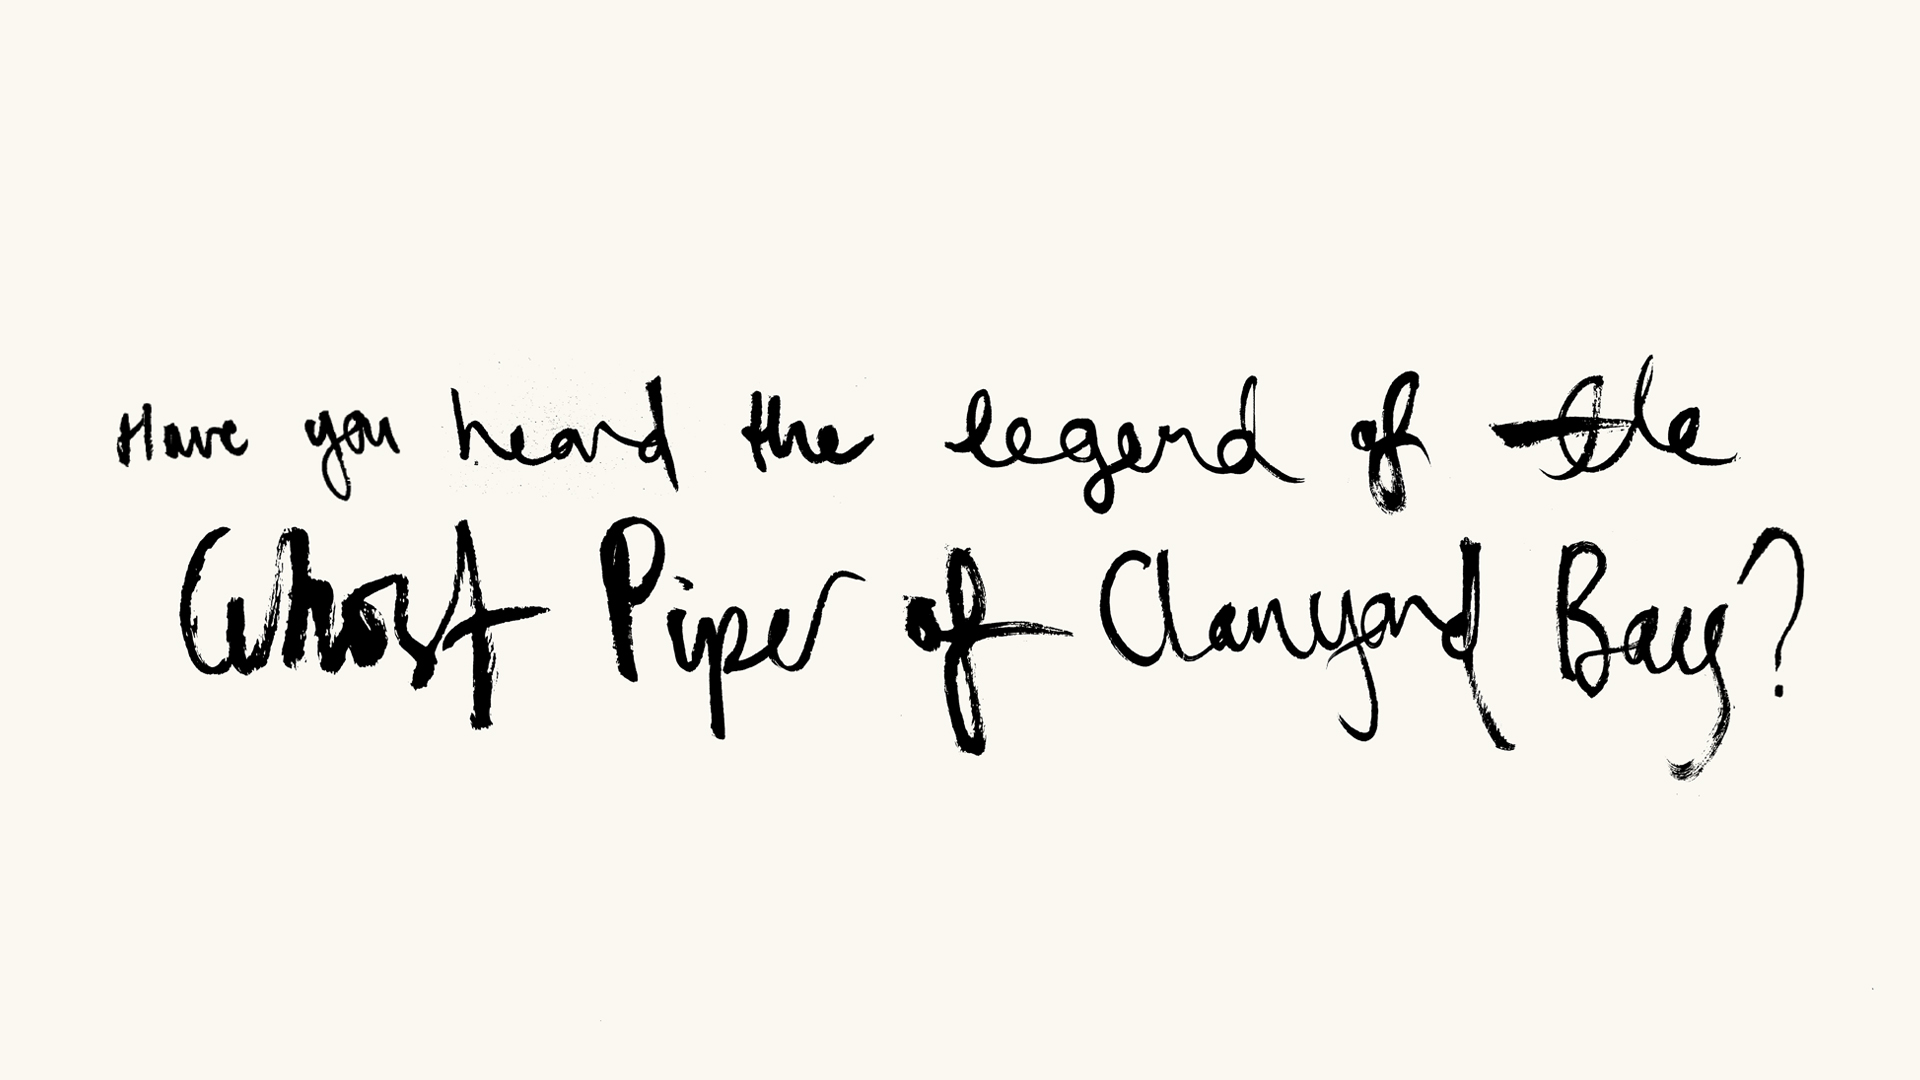 Have you heard the legend of the
Ghost Piper of Clanyard Bay?